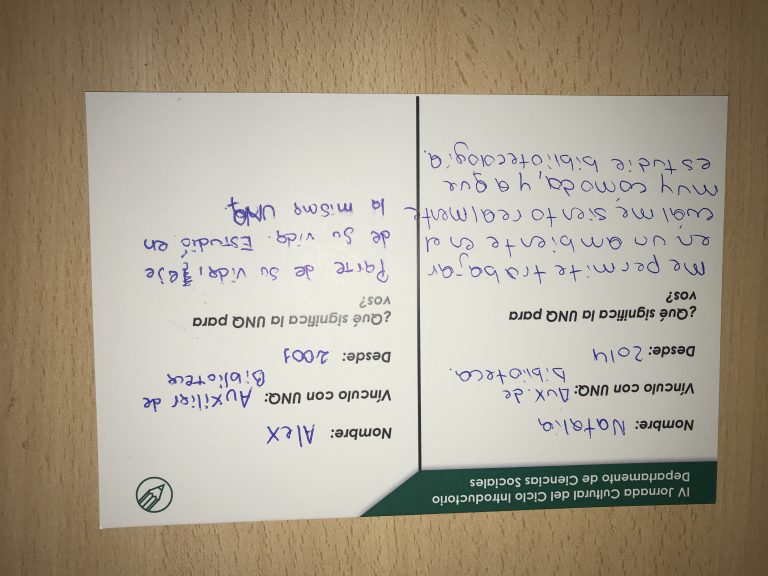 IV Jornada Cultural del Ciclo Introductorio
Departamento de Ciencias Sociales
Nombre: Natalia
Vínculo con UNQ: Aux. de
biblioteca.
Desde: 2014
¿Qué significa la UNQ para
vos?
me permite trabajar
en un ambiente en el
cuál me siento realmente
muy comoda, ya que
estudie bibliotecología.
Nombre: Alex
Vínculo con UNQ: Auxiliar de
Biblioteca
Desde: 2001
¿Qué significa la UNQ para
vos?
Parte de su vida, eje
de su vida. Estudió en
la misma UNQ.